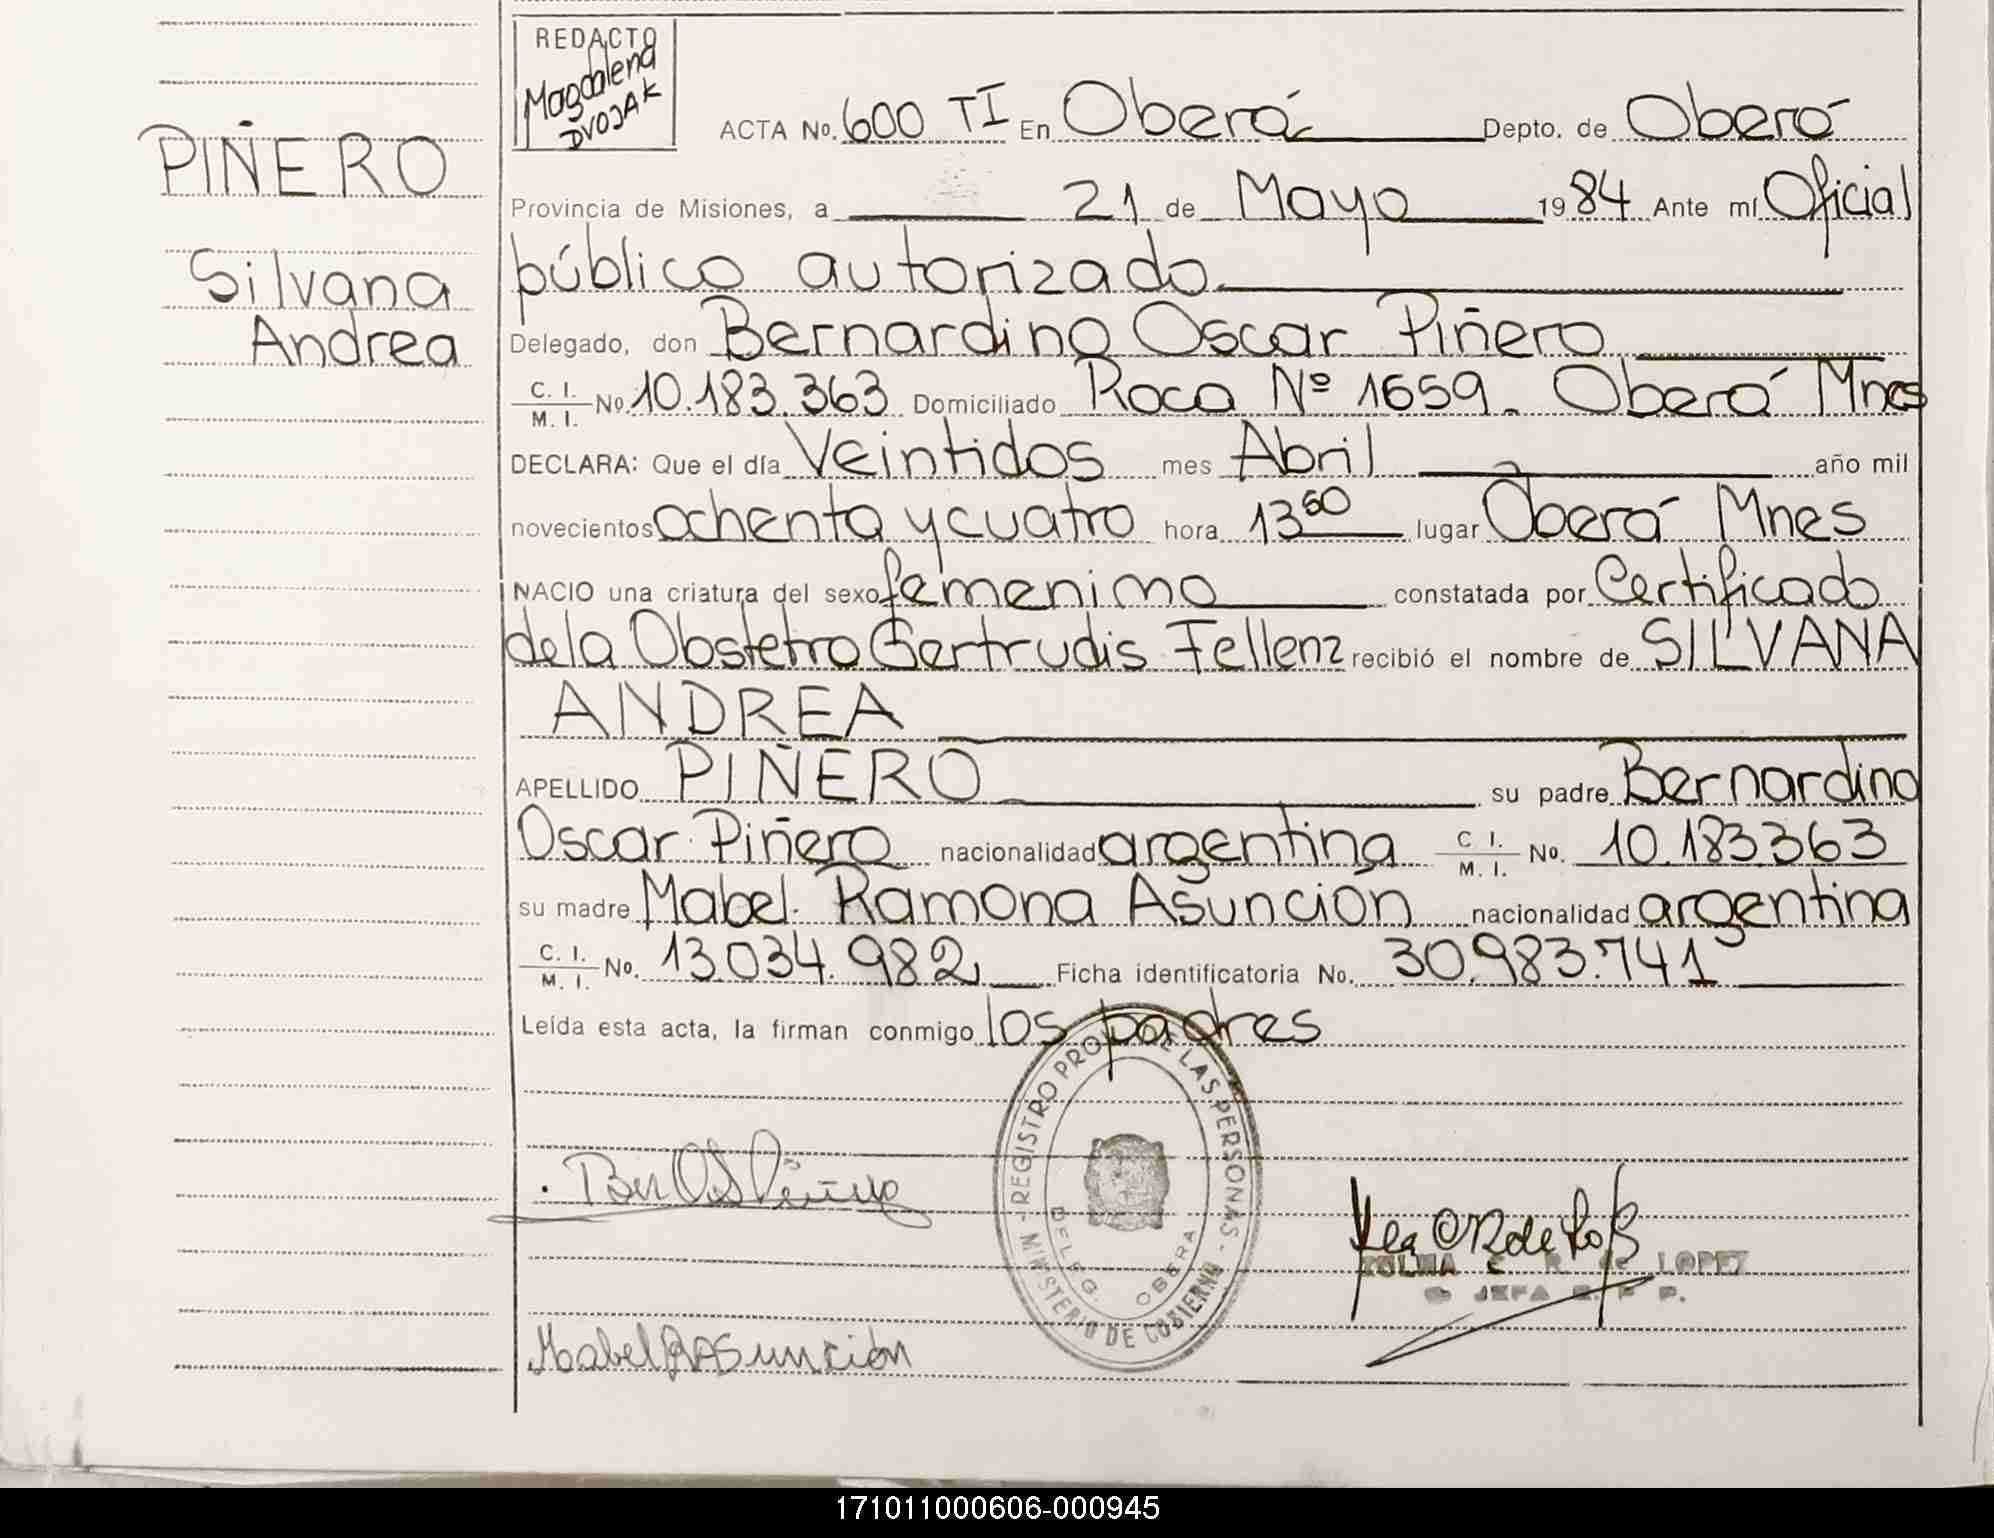 REDACTO
Magdalena
DVOJAK
ACTA No. 600 TI En Oberá Depto. de Oberá
PIÑERO
Provincia de Misiones, a 21 de Mayo 1984 Ante mí Oficial
público autorizado
Silvana
Andrea
Delegado, don Bernardino Oscar Piñero
C. I.
M. I. No. 10.183.363 Domiciliado Roca Nº 1659. Oberá Mnes
DECLARA: Que el día Veintidos mes Abril año mil
novecientos ochenta y cuatro hora 13 50 lugar Oberá Mnes
NACIO una criatura del sexo femenino constatada por Certificado
de la Obstetra Gertrudis Fellenz recibió el nombre de SILVANA
ANDREA
APELLIDO PIÑERO su padre Bernardino
Oscar Piñero nacionalidad argentina C. I.
M. I. No. 10.183.363
su madre Mabel Ramona Asunción nacionalidad argentina
C. I.
M. I. No. 13.034.982 Ficha identificatoria No. 30.983.741
Leída esta acta, la firman conmigo los padres
REGISTRO PROV. DE LAS PERSONAS - MINISTERIO DE GOBIERNO
DELEG. OBERA
LOPEZ
JEFA
Mabel R Asunción
171011000606-000945